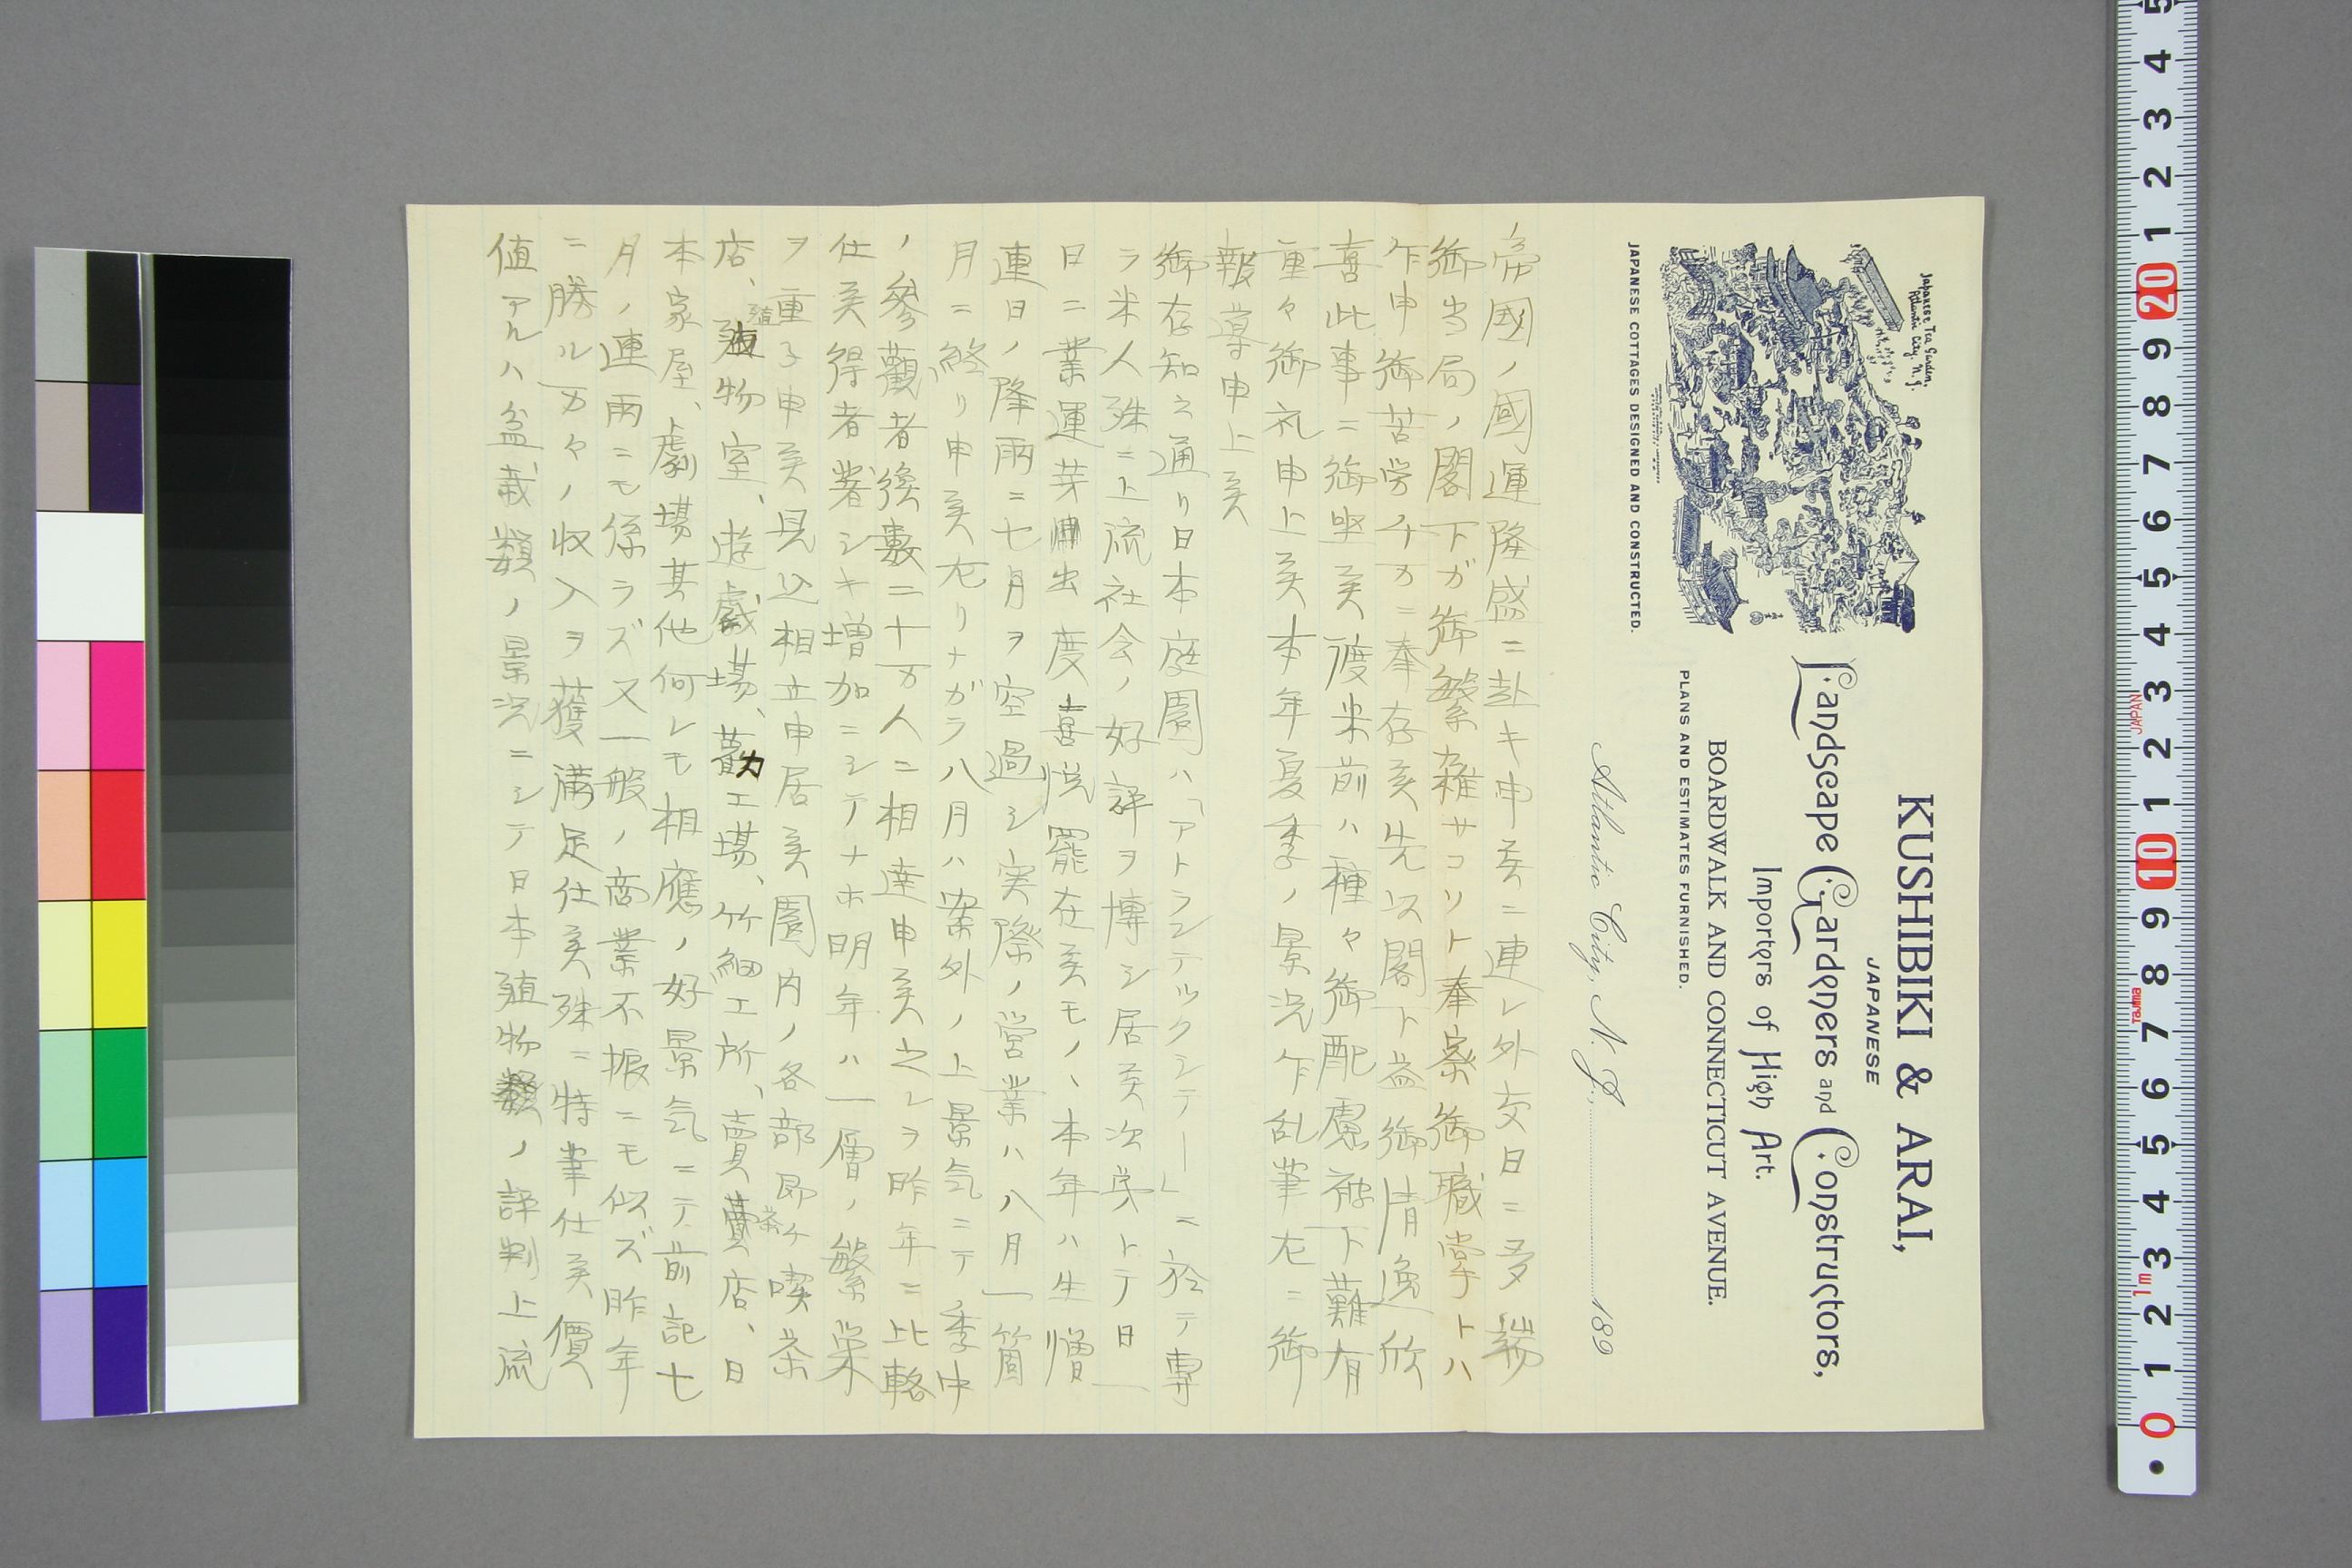 Japanese Tea Garden,
Atlantic City, N. J.
KUSHIBIKI & ARAI,
JAPANESE
Landscape Gardeners and Constructors,
Importers of High Art.
BOARDWALK AND CONNECTICUT AVENUE.
PLANS AND ESTIMATES FURNISHED.
JAPANESE COTTAGES DESIGNED AND CONSTRUCTED.
Atlantic City, N. J., 189
帝國ノ國運隆盛ニ赴キ申候ニ連レ外交日ニ多端
御当局ノ閣下ガ御繁雑サコソト奉察御職掌トハ
乍申御苦労千万ニ奉存候先以閣下益御清逸欣
喜此事ニ御坐候渡米前ハ種々御配慮被下難有
重々御礼申上候本年夏季ノ景況乍乱筆左ニ御
報導申上候
御存知之通リ日本庭園ハ「アトランテックシテー」ニ於テ専
ラ米人殊ニ上流社会ノ好評ヲ博シ居候次第トテ日一
日ニ業運芽出度喜悦罷在候モノヽ本年ハ生憎
連日ノ降雨ニ七月ヲ空過シ実際ノ営業ハ八月一箇
月ニ終リ申候左リナガラ八月ハ案外ノ上景気ニテ季中
ノ參觀者後數二十万人ニ相達申候之レヲ昨年ニ比較
仕候得者著シキ増加ニシテナホ明年ハ一層ノ繁栄
ヲ重子申候見込相立申居候園内ノ各部即チ喫茶
店、殖物室、遊戯場、工場、竹細工所、賣店、日
本家屋、劇場其他何レモ相應ノ好景気ニテ前記七
月ノ連雨ニモ係ラズ又一般ノ商業不振ニモ似ズ昨年
ニ勝ル万々ノ収入ヲ獲満足仕候殊ニ特筆仕候價
値アルハ盆栽類ノ景況ニシテ日本殖物類ノ評判上流